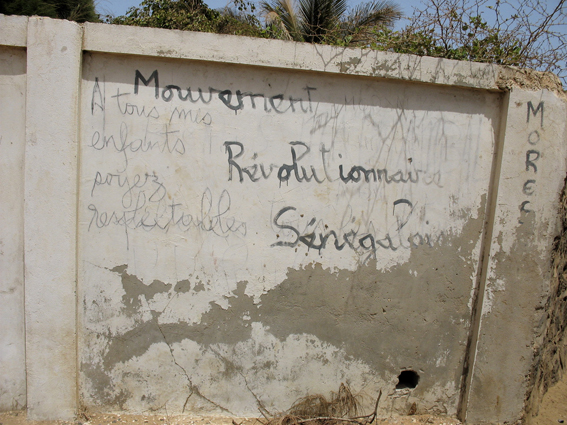 Mouvement
Révolutionnaire
Sénégalais
A tous mes
enfants
soyez
respectables
MORES